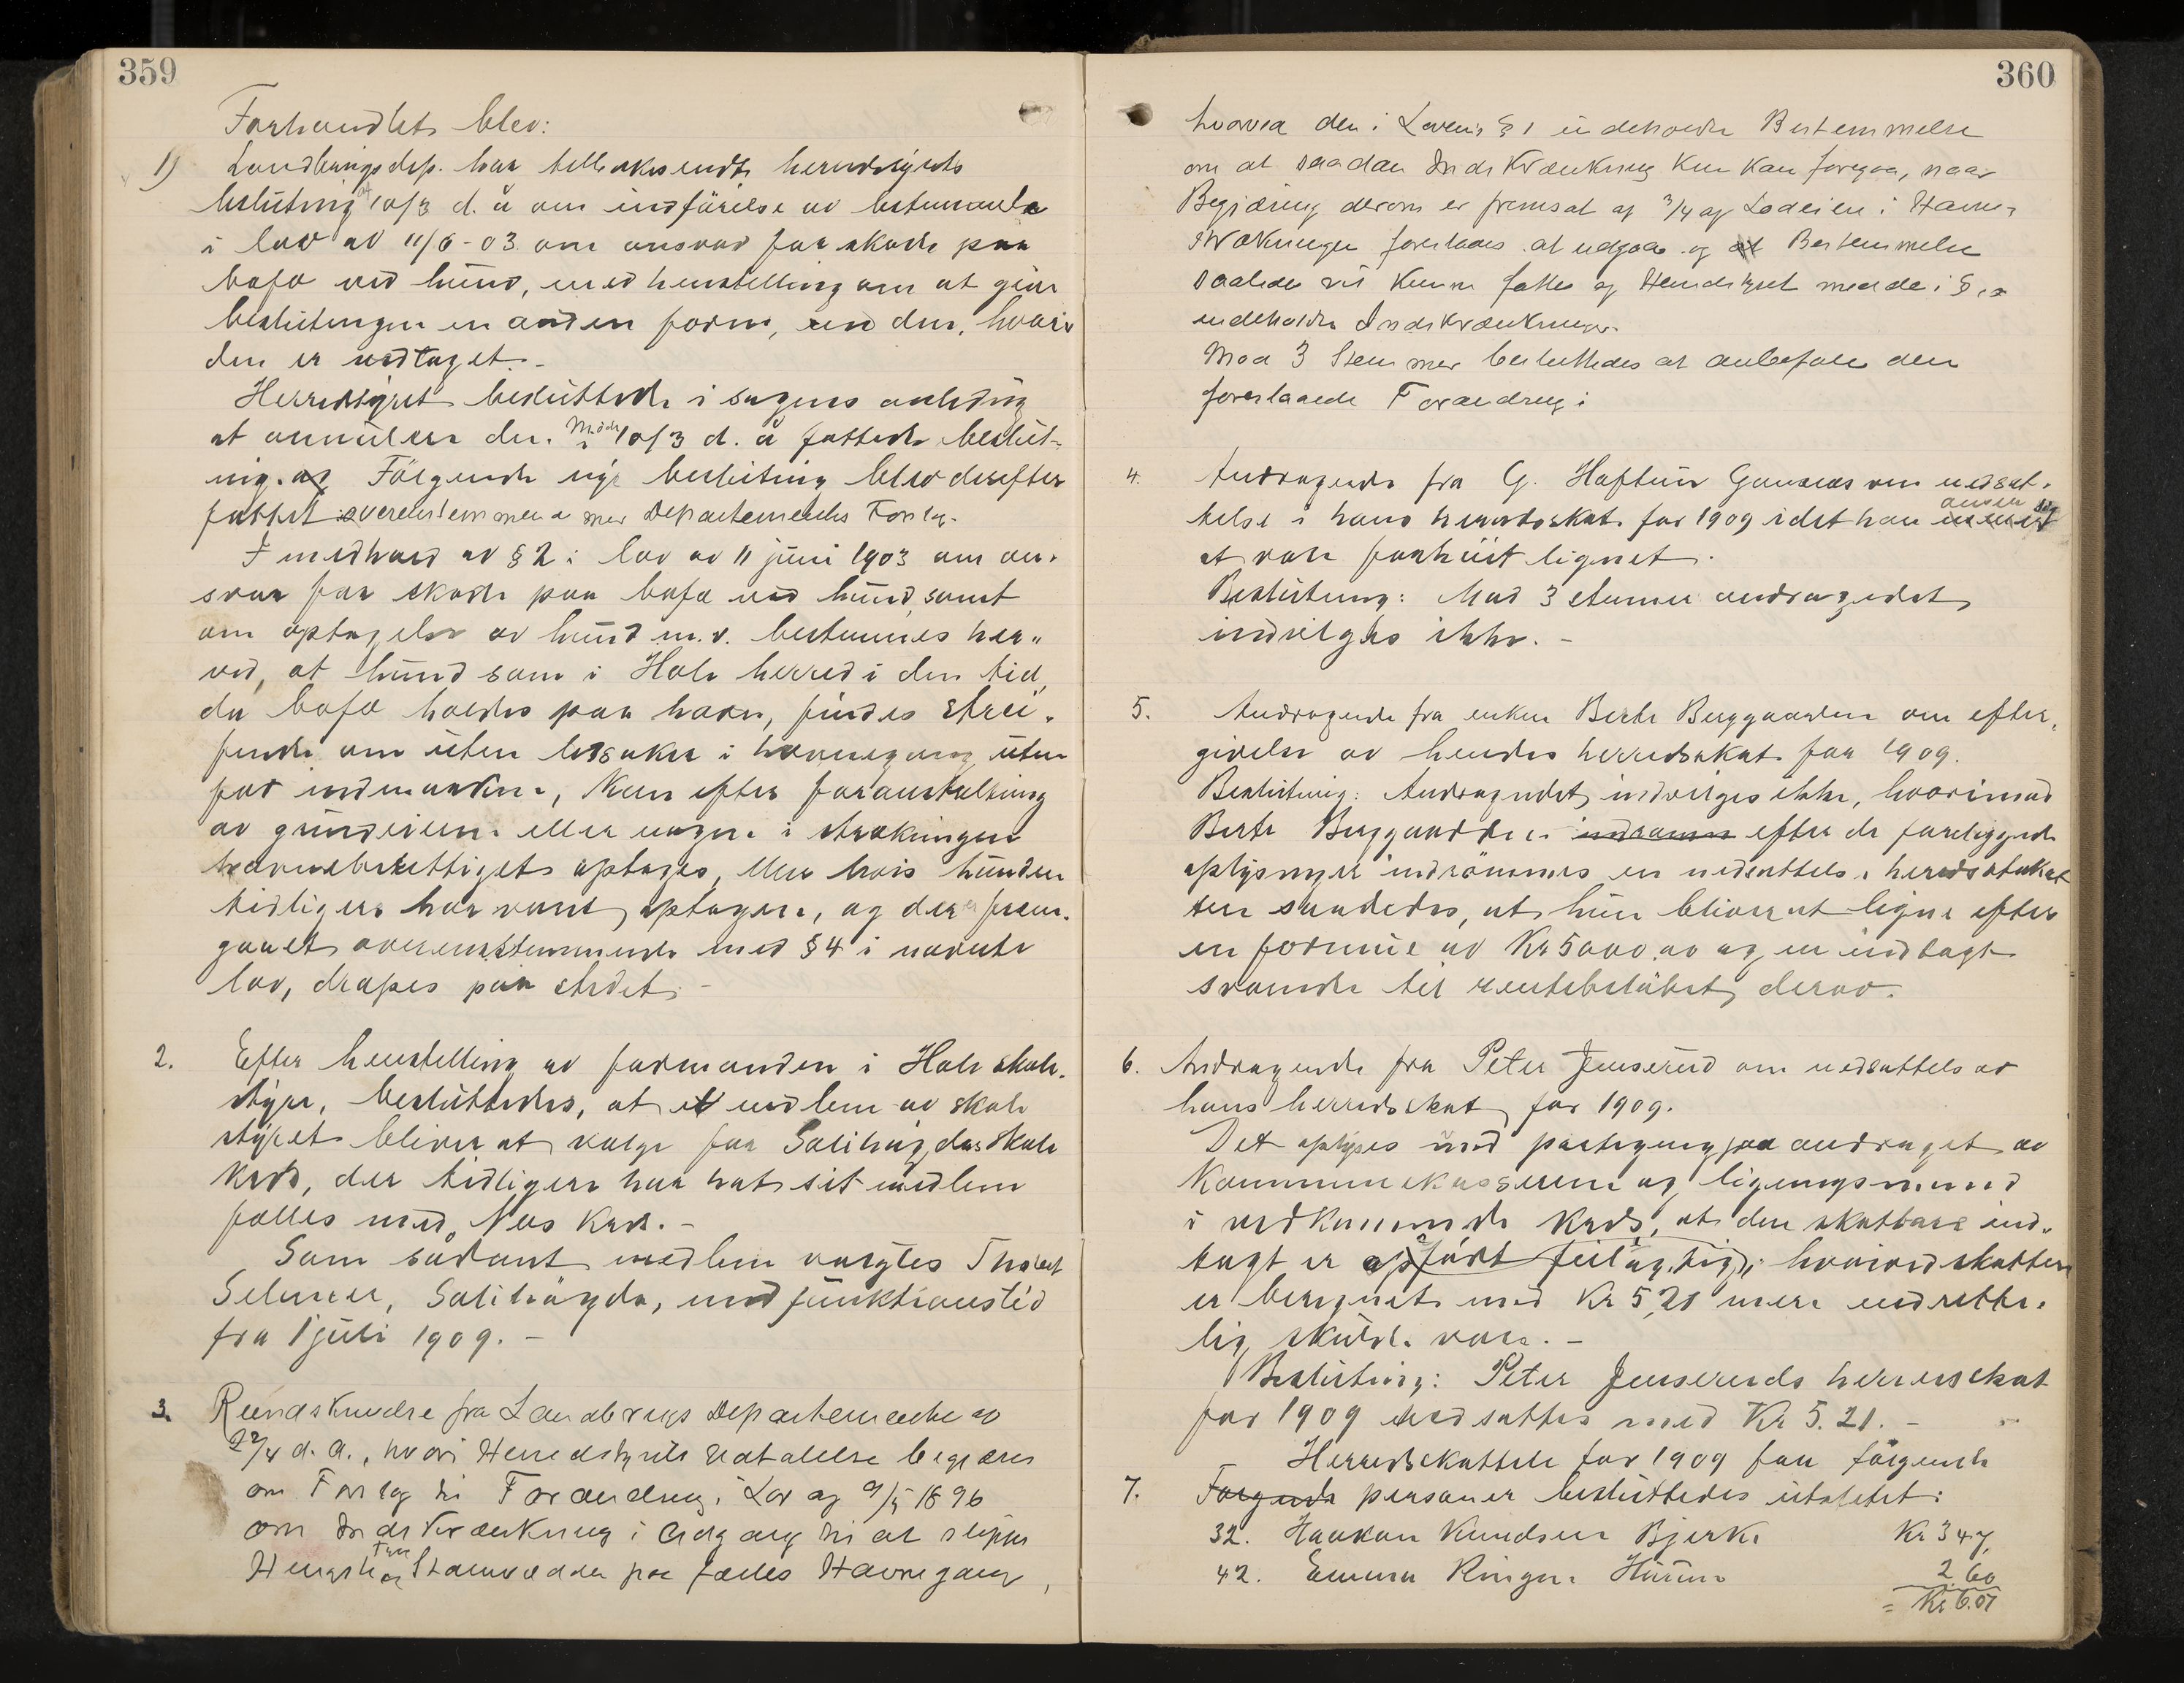 359
Forhandlet blev:
1) Landbrugsdep. har tilbakesendt herredstyrets
beslutning af 10/3 d. å om indførelse av bestemmelse
i lov av 11/6-03 om ansvar for skade paa
bufæ ved hund, med henstilling om at give
beslutningen en anden form, end den, hvori
den er vedtaget. -
Herredstyret besluttede i sagens anledning
at annulere den i Møde 10/3 d. å fattede beslut-
ning. Følgende nye beslutning blev derefter
fattet i overenstemmelse med Departementets Forslag.
I medhold av § 2 i lov av 11 juni 1903 om an-
svar for skade paa bufæ ved hund, samt
om optagelse av hund m.v. bestemmes her-
ved, at hund som i Hole herred i den tid,
da bufæ holdes paa havn, findes strei-
fende om uten ledsaker i havnegang uten
for indmarkene, kun efter foranstaltning
av grundeieren eller nogen i strøkningen
havneberettiget optages, men hvis hunden
tidligere har vært optagen, og der er frem-
gaaet overensstemmende med § 4 i nævnte
lov, dræpes paa stedet. -
2. Efter henstilling av formanden i Hole skole-
styre, besluttedes, at et medlem av skole
styret bliver at vælge for Solihøgda skole
kreds, der tidligere har hat sit medlem
fælles med Nes kreds. -
Som sådant medlem valgtes Thorleif
Selmer, Solihøgda, med funktionstid
fra 1 juli 1909. -
3. Rundskrivelse fra Landbrugs Departementet av
22/4 d. A., hvori Herredstyrets Udtalelse begjæres
om Forslag til Forandring i Lov af 9/5 1896
om Indskrænkning i Adgang til at slippe
Hingster, Tyre og Stamvædder paa fælles Havnegang,
360
hvorved den i Lovens § 1 indeholdte Bestemmelse
om at saadan Indskrænkning kun kan foregaa, naar
Begjæring derom er fremsat af 3/4 af Lodeiere i Havne-
strækningen foreslaaes at udgaa og Bestemmelse
saaledes vil kunne fattes af Herredstyret med de i §
indeholdte Indskrænkninger.
Mod 3 Stemmer besluttedes at anbefale den
foreslaaede Forandring.
4. Andragende fra G. Haftun Gomnes om nedsæt-
telse i hans herredsskat for 1909 idet han anser sig
at være forhøit lignet.
Beslutning: Mod 3 stemmer andragendet
indvilges ikke. -
5. Andragende fra enken Berte Berggaarden om efter-
givelse av hendes herredsskat for 1909.
Beslutning: Andragendet indvilges ikke, hvorimod
Berte Berggaarden efter de foreliggende
oplysninger indrømmes en nedsættelse i herredsskat
ten saaledes, at hun bliver at ligne efter
en formue av Kr 5000.00 og en indtægt
svarende til rentebeløbet derav.
6. Andragende fra Peter Jenserud om nedsættelse av
hans herredsskat for 1909.
Det oplyses ved paategning paa andraget av
Kommunekassereren og ligningsmand
i vedkommende kreds, at den skatbare ind-
tægt er opført feilagtig, hvorved skatten
er beregnet med Kr 5,21 mere end rette-
lig skulde være. -
Beslutning: Peter Jenseruds herredsskat
for 1909 nedsættes med Kr 5.21. -
Herredsskatten for 1909 for følgende
7. Følgende personer besluttedes utslettet:
32. Haakon Knudsen Bjerke Kr 3 47
42. Emma Ringen Hurum 2 60
= Kr 6.07